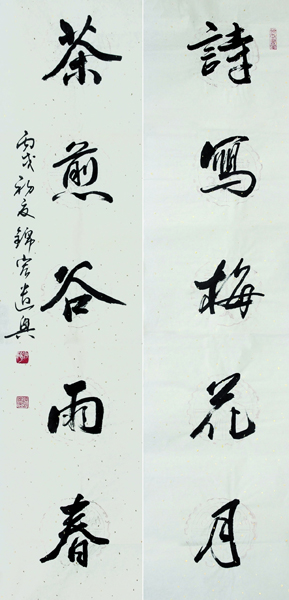 詩寫梅花月
茶煎谷雨春
丙戌初夏錦官遣興